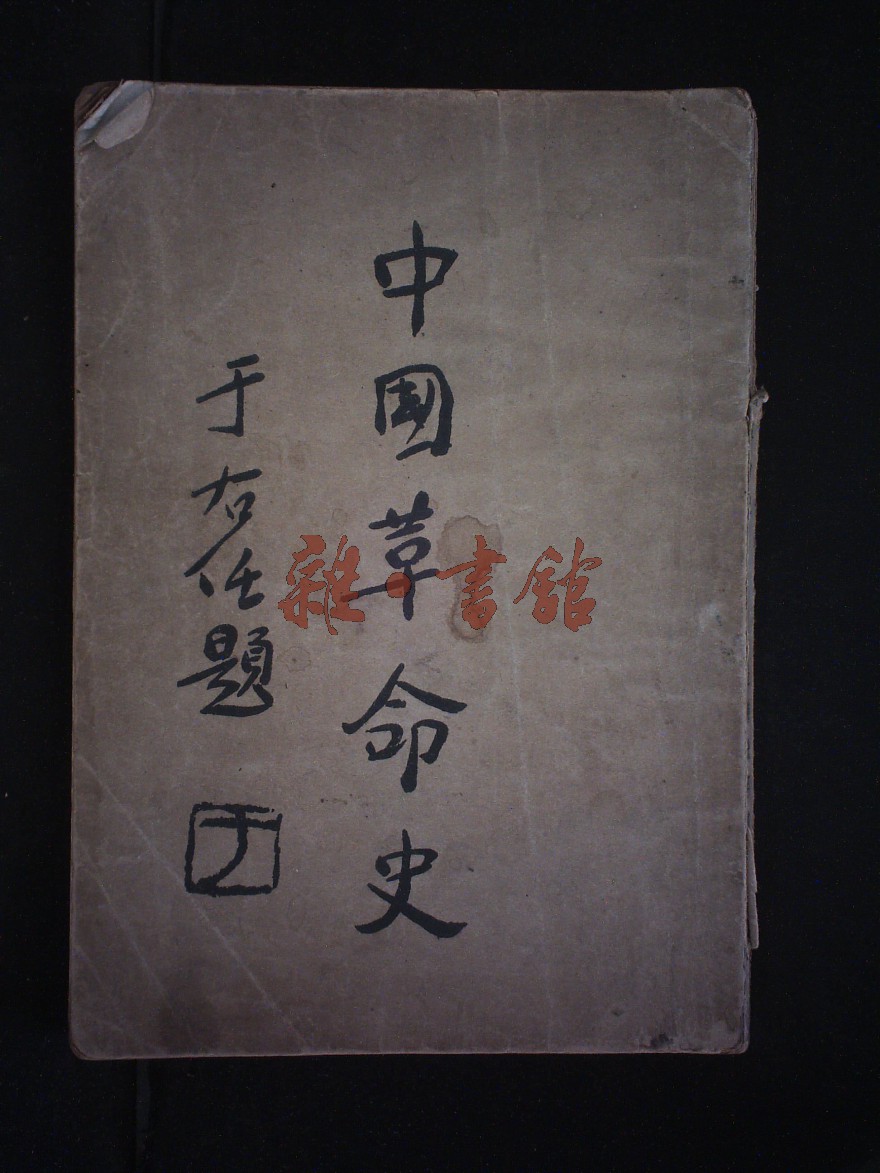 中國革命史
于右任題
于
雜·書館